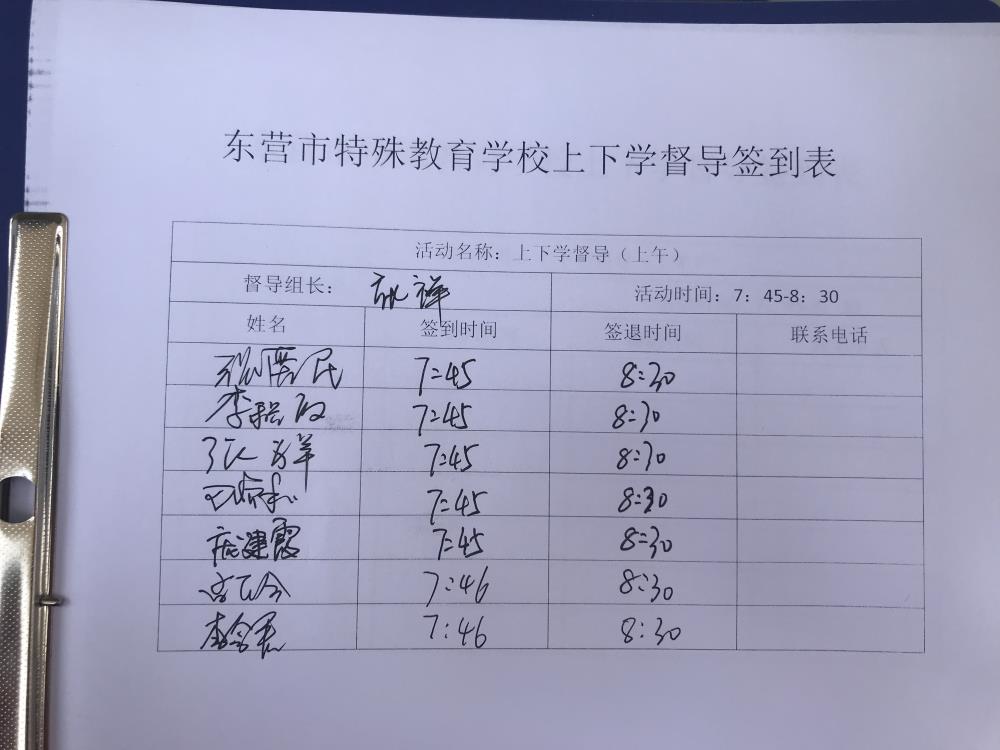 东营市特殊教育学校上下学督导签到表
活动名称：上下学督导（上午）
督导组长： 活动时间：7：45-8：30
姓名 签到时间 签退时间 联系电话
7:45 8:30
李 7:45 8:30
7:45 8:30
7:45 8:30
庞建霞 7:45 8:30
7:46 8:30
李 7:46 8:30